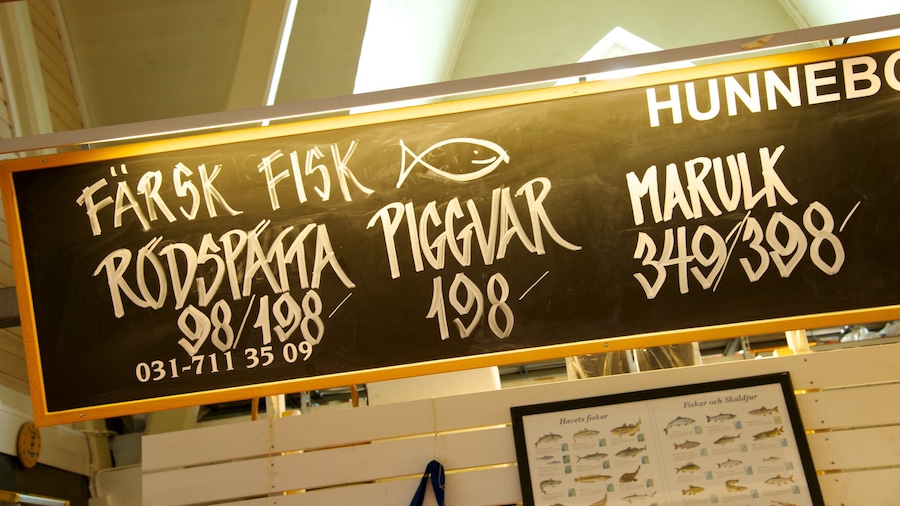 HUNNEBO
FÄRSK FISK
RÖDSPÄTTA PIGGVAR MARULK
98/198 198 349/398
031-711 35 09
Havets fiskar Fiskar och Skaldjur